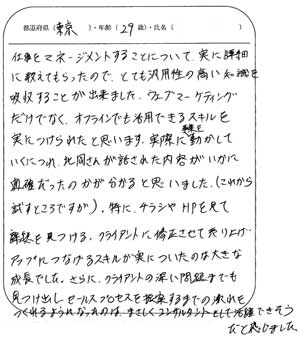 都道府県(東京)・年齢(29歳)・氏名()
仕事をマネージメントすることについて、実に詳細
に教えてもらったので、とても汎用性の高い知識を
吸収することが出来ました。ウェブマーケティング
だけでなく、オフラインでも活用できるスキルを
実につけられたと思います。実際に動かして
いくにつれ、北岡さんが話された内容がいかに
重確だったのかが分かると思いました。(これから
試すところですが)。特に、チラシやHPを見て
課題を見つける。クライアントに修正させて売り上げ
アップにつなげるスキルが実についたのは大きな
成長でした。さらに、クライアントの深い問題までも
見つけ出しセールスプロセスを提案するまでの流れを
つくれるようになったのは、まさしくコンサルタントとして活躍できそう
だと感じました